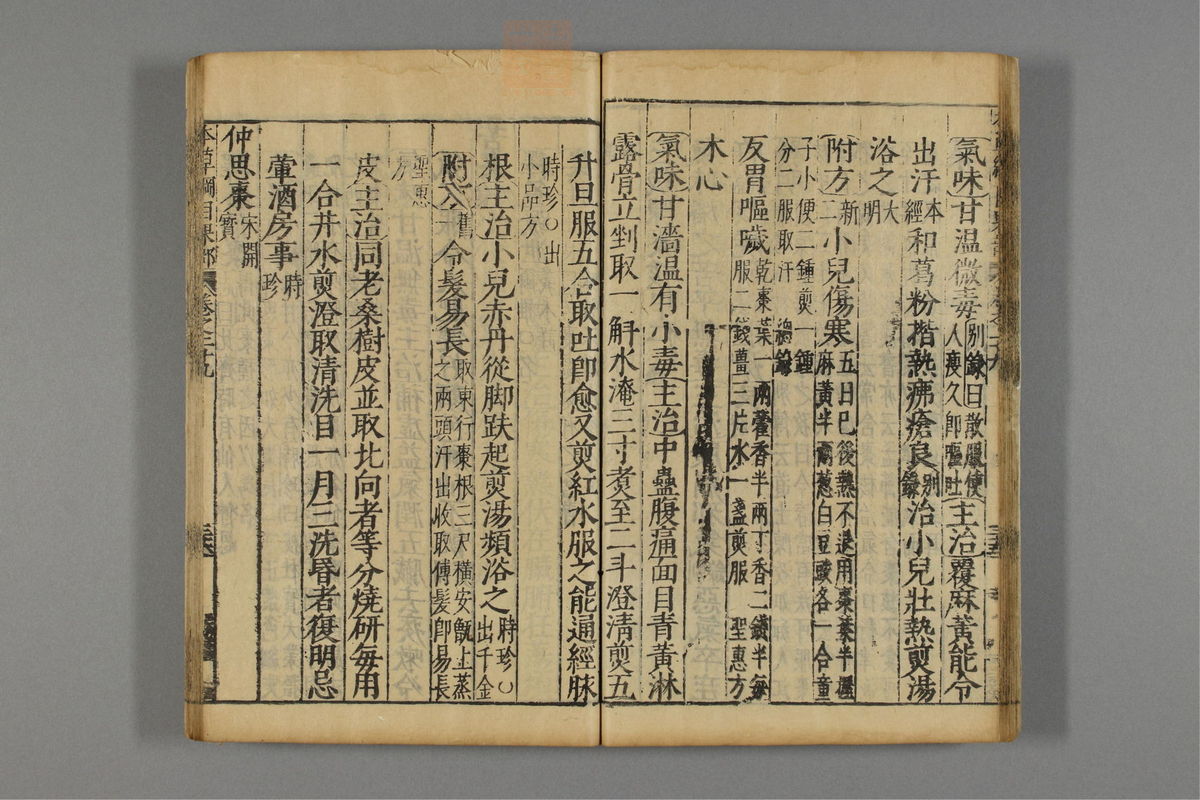 氣味甘温微毒别錄曰散服使
人瘦久即嘔吐主治覆麻黃能令
出汗本
經和葛粉揩熱疿瘡良别
錄治小兒壯熱煎湯
浴之大
明
附方新
二小兒傷寒五日已後熱不退用棗葉半握
麻黃半兩葱白豆豉各一合童
子小便二鍾煎一鍾
分二服取汗 總錄
反胃嘔噦乾棗葉一兩藿香半兩丁香二錢半每
服二錢薑三片水一盞煎服 聖惠方
木心
氣味甘濇温有小毒主治中蠱腹痛面目青黃淋
露骨立剉取一斛水淹三寸煑至二斗澄清煎五
升旦服五合取吐即愈又煎紅水服之能通經脉
時珍○出
小品方
根主治小兒赤丹從脚趺起煎湯頻浴之時珍○
出千金
附方舊
一令髮易長取東行棗根三尺横安甑上蒸
之兩頭汗出收取傅髮即易長
聖惠
方
皮主治同老桑樹皮並取北向者等分燒研每用
一合井水煎澄取清洗目一月三洗昏者復明忌
葷酒房事時
珍
仲思棗宋開
寳
本草綱目果部 卷之二十九